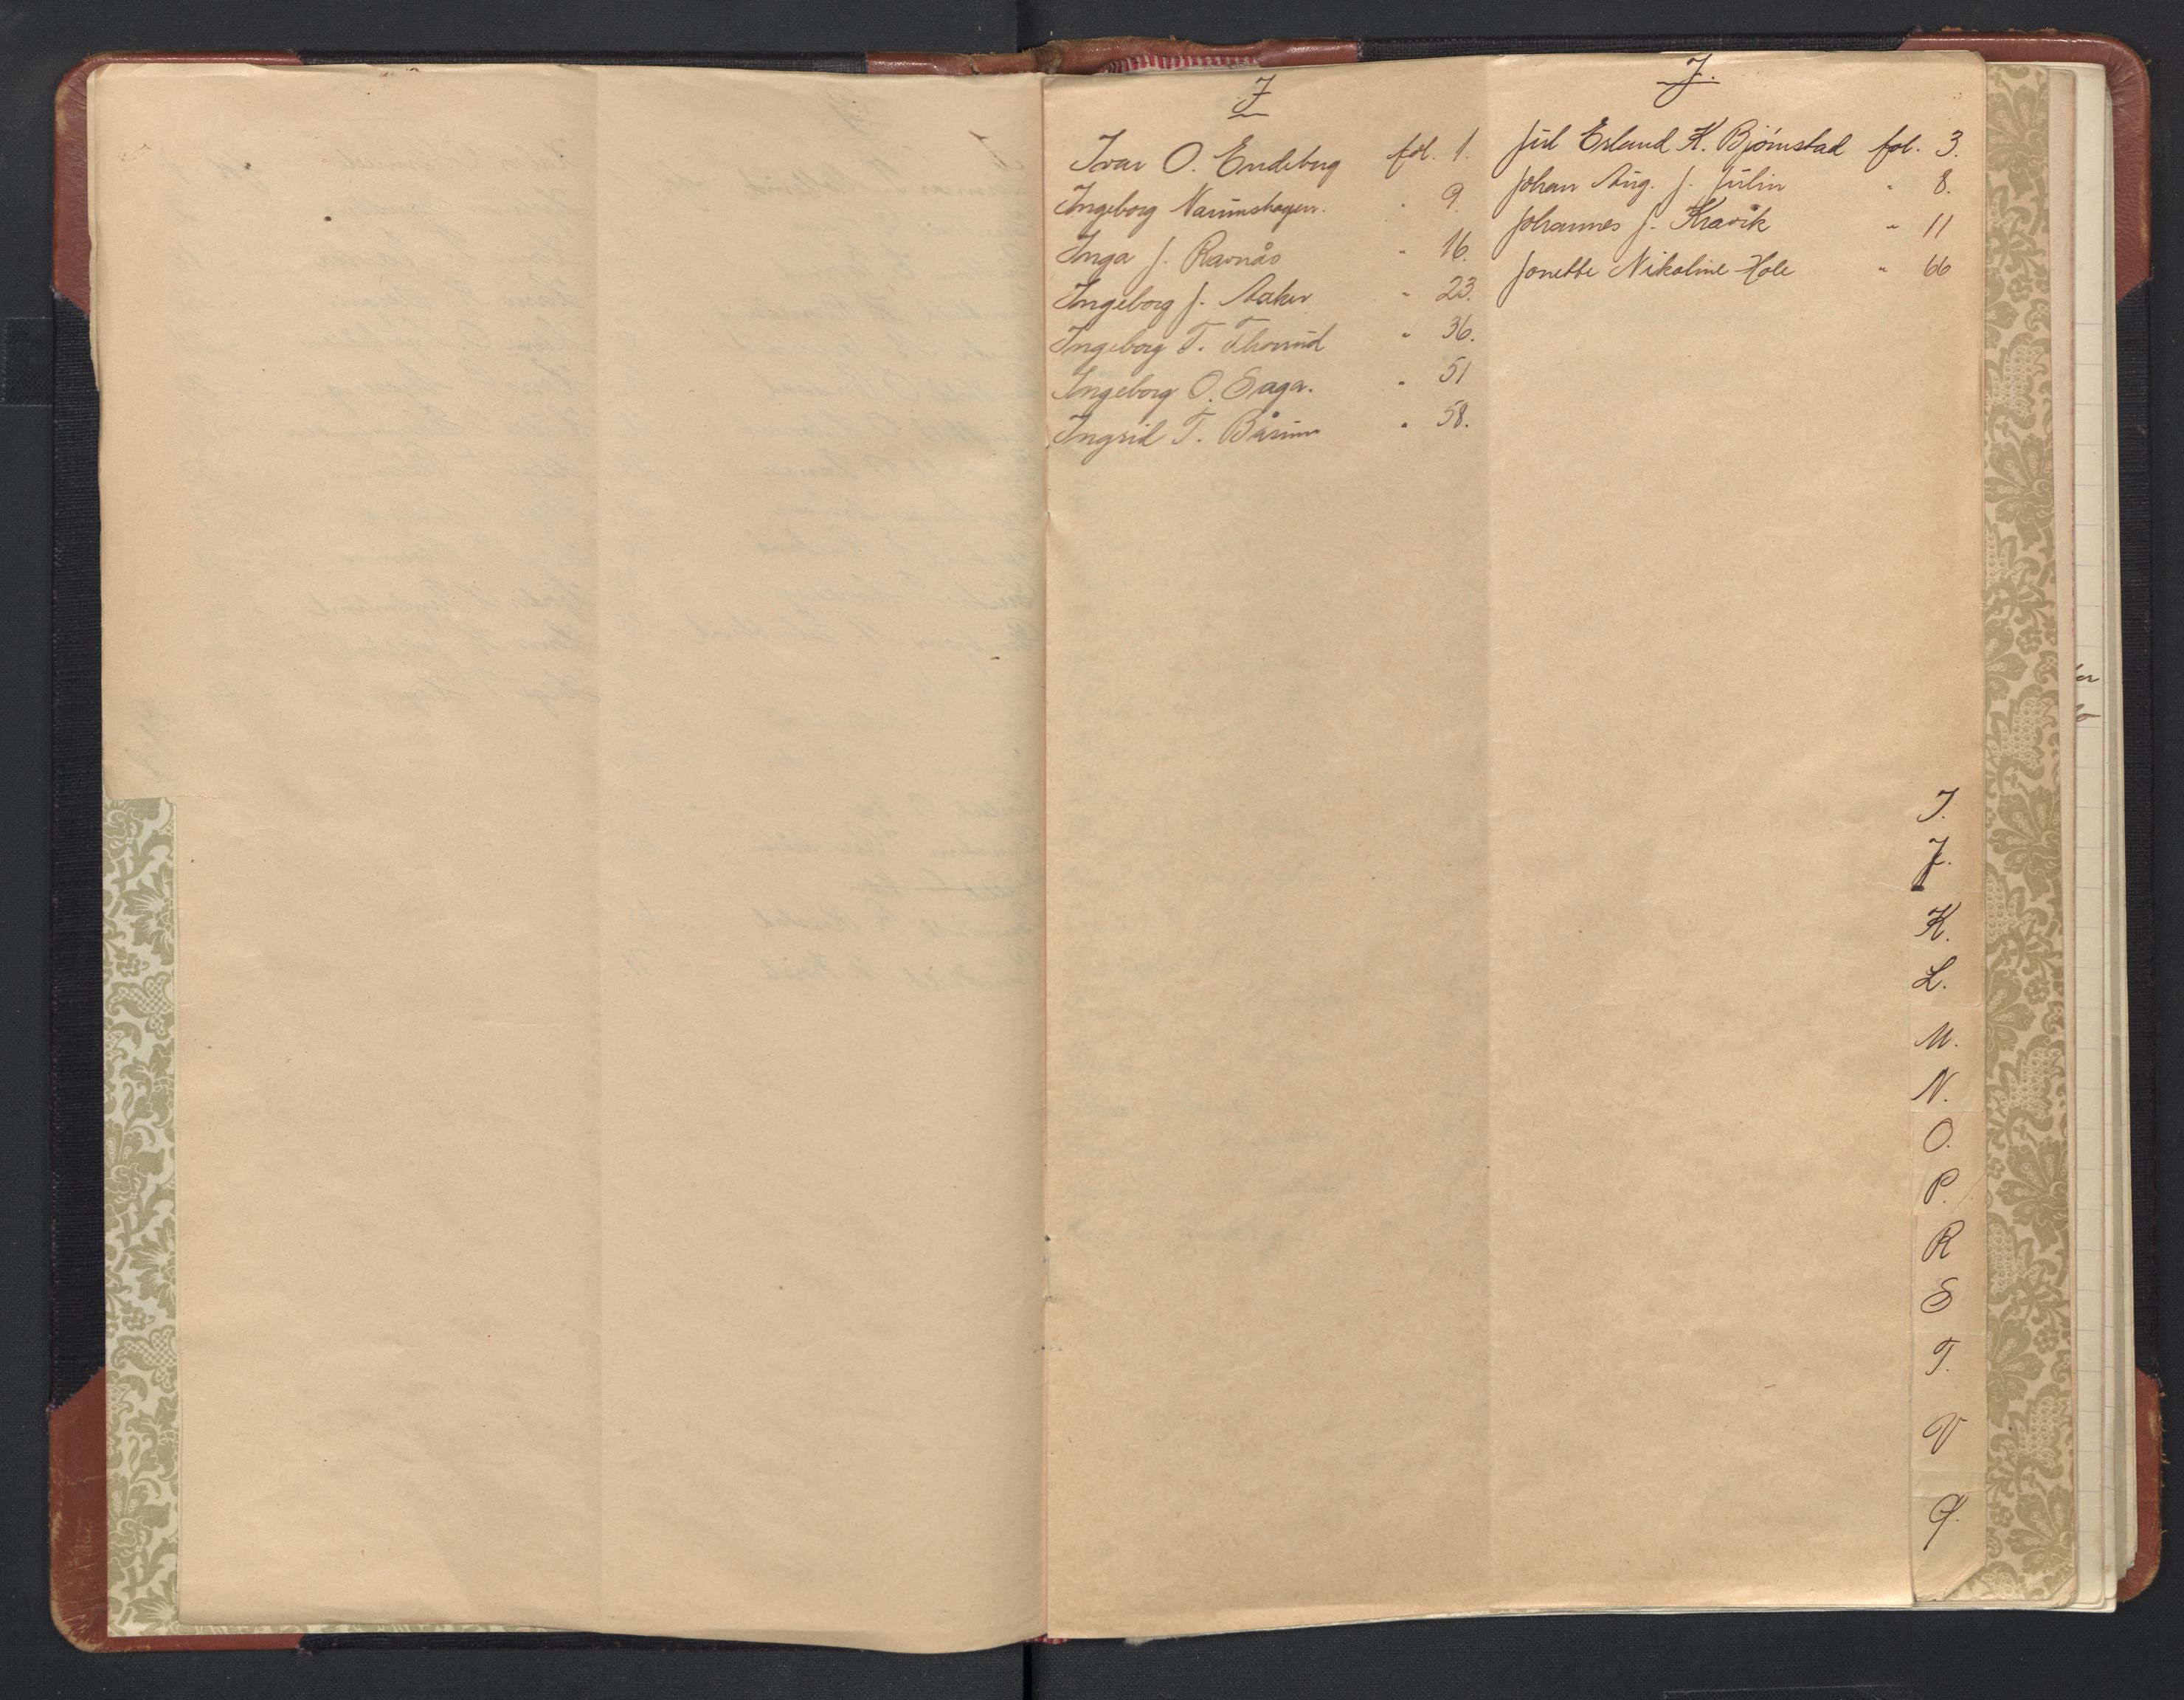 I
Ivar O. Endeberg fol. 1.
Ingeborg Narumshagen. " 9.
Inga J. Ravnås " 16.
Ingeborg J. Aaker " 23.
Ingeborg T. Thorud " 36.
Ingeborg O. Saga. " 51
Ingrid T. Bårun " 58.
J.
Jul Erland K. Bjørnstad fol. 3.
Johan Aug. J. Julin " 8.
Johannes J. Kravik " 11
Jonette Nikoline Hole " 66
I.
J.
K.
L.
M.
N.
O.
P.
R
S
T.
V
Ø.